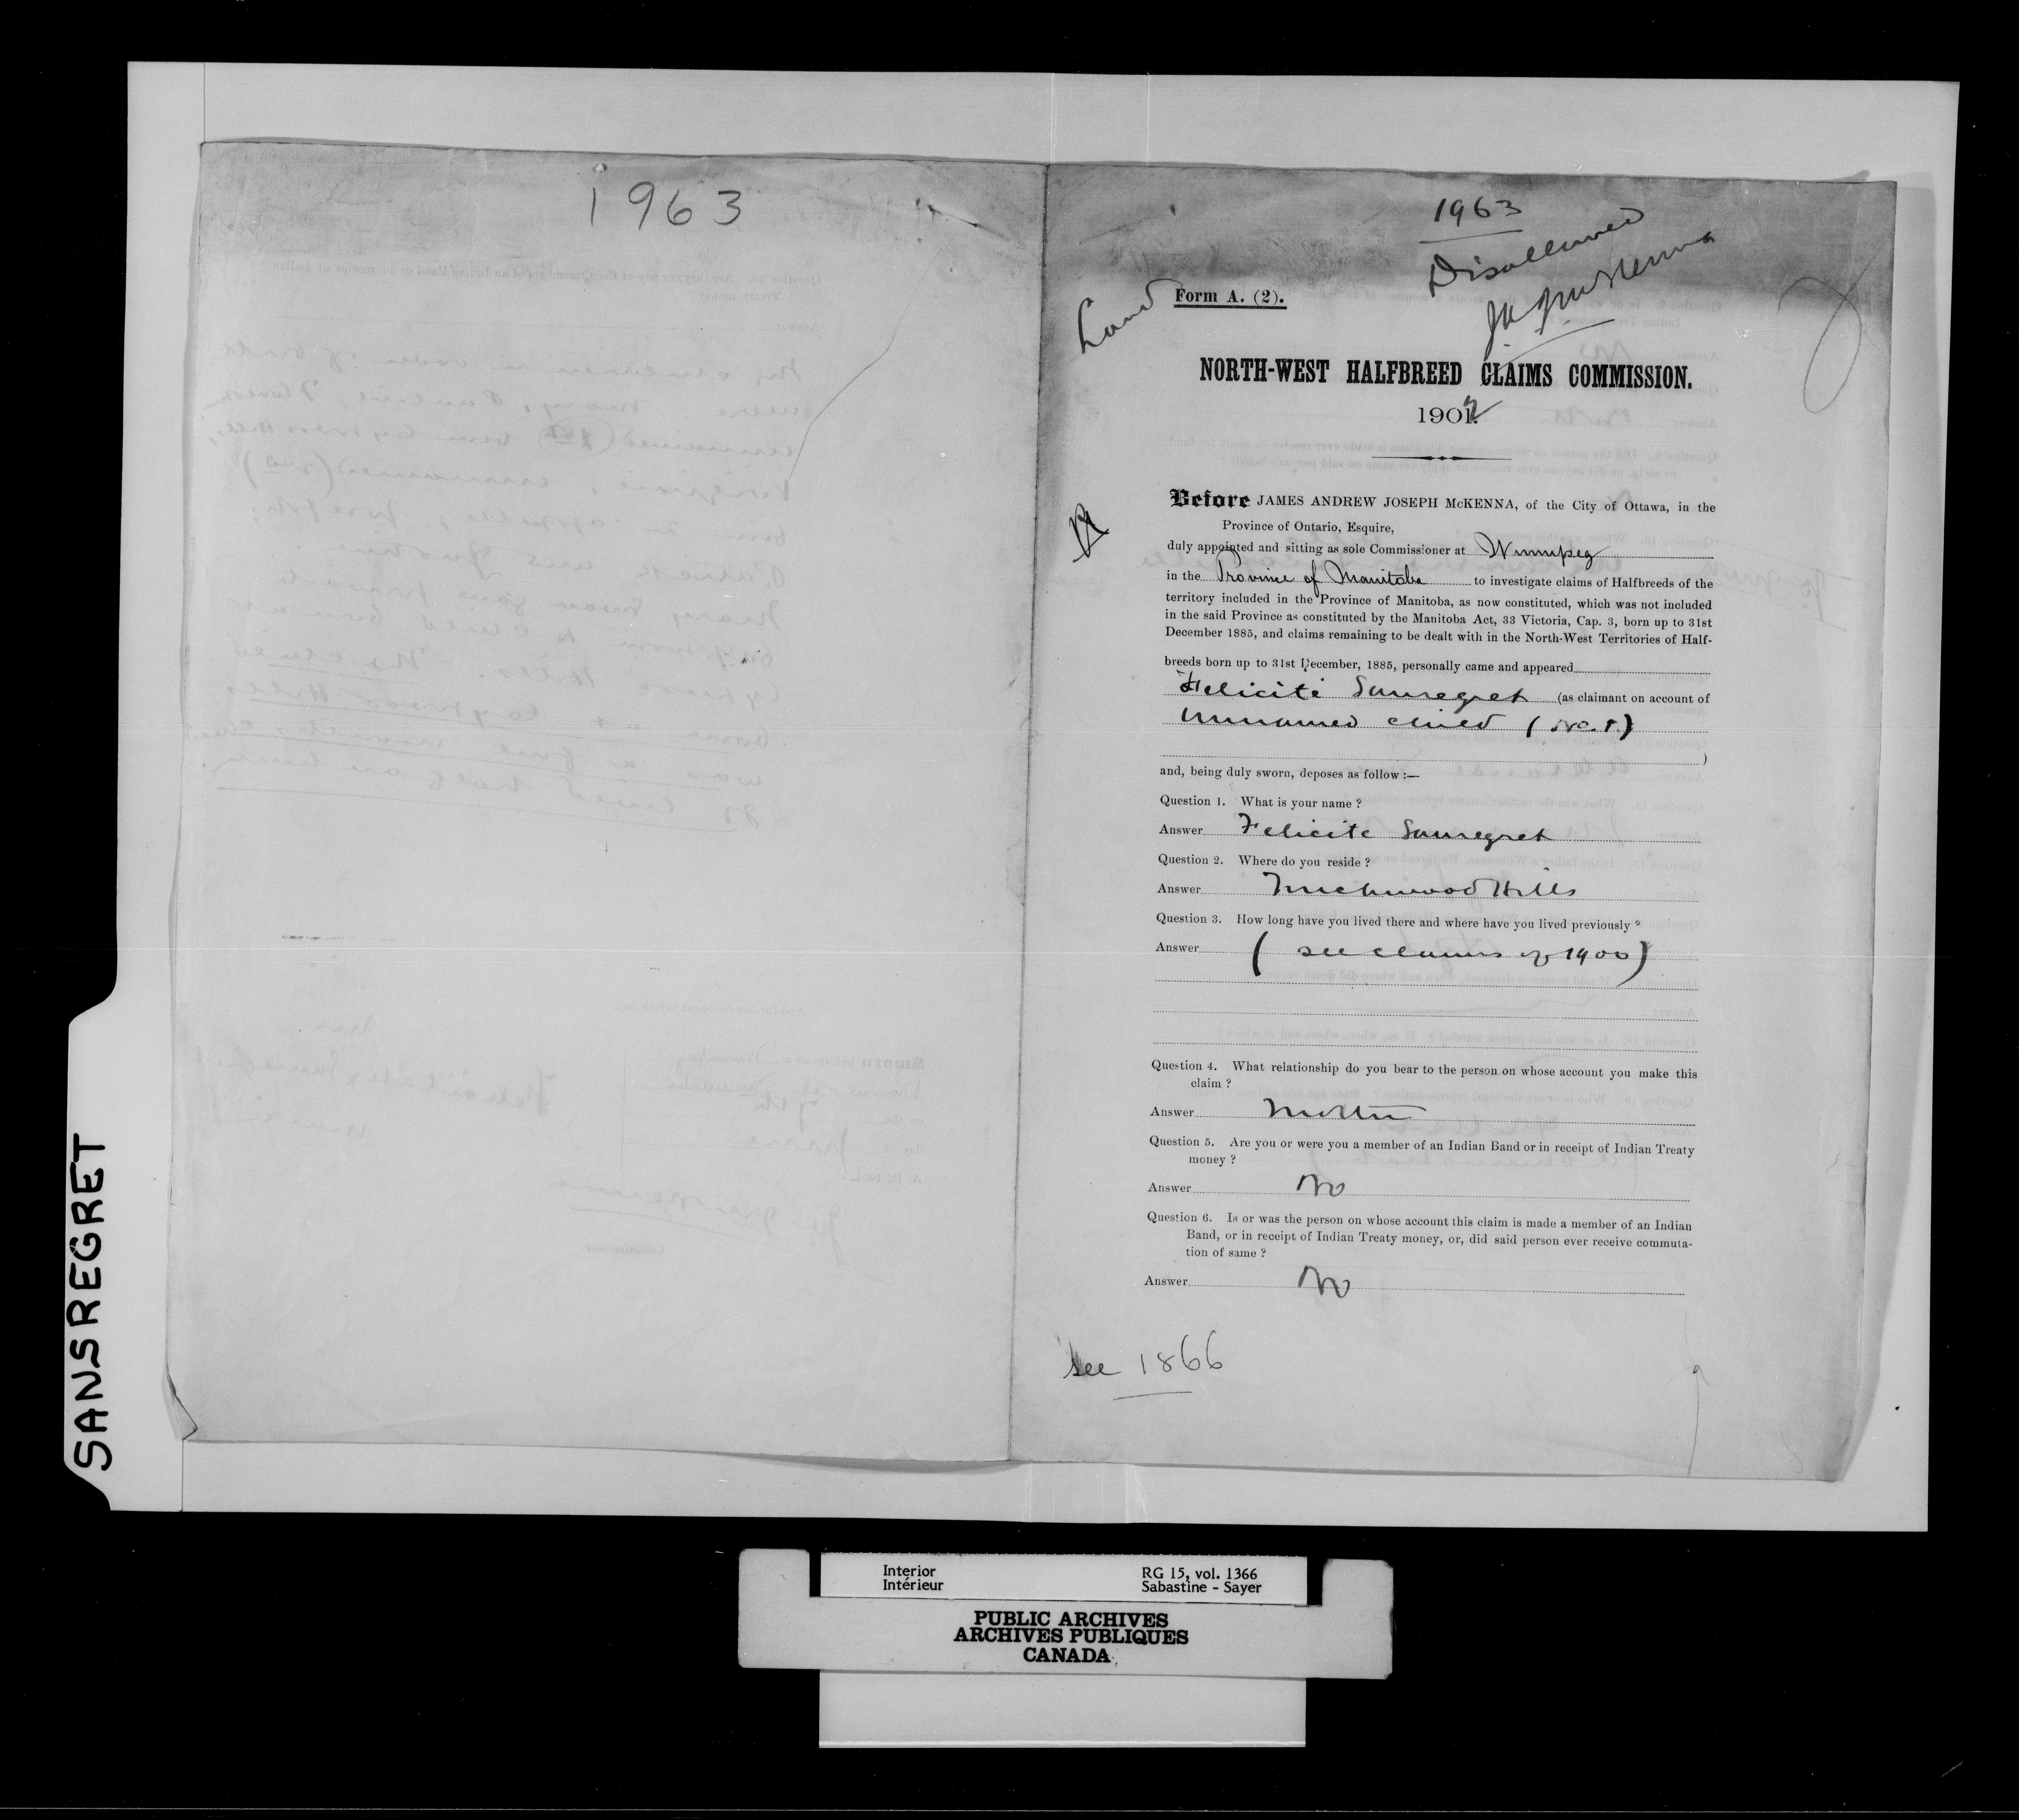 1963
1963
Disallowed
J A J McKenna
Land
Form A. (2).
NORTH-WEST HALFBREED CLAIMS COMMISSION.
1902
Before JAMES ANDREW JOSEPH McKENNA, of the City of Ottawa, in the
Province of Ontario, Esquire,
duly appointed and sitting as sole Commissioner at Winnipeg
in the Province of Manitoba to investigate claims of Halfbreeds of the
territory included in the Province of Manitoba, as now constituted, which was not included
in the said Province as constituted by the Manitoba Act, 33 Victoria, Cap. 3, born up to 31st
December 1885, and claims remaining to be dealt with in the North-West Territories of Half-
breeds born up to 31st December, 1885, personally came and appeared
Felicité Sansregret (as claimant on account of
Unnamed child (No. 1)
)
and, being duly sworn, deposes as follow :—
Question 1. What is your name ?
Answer Felicite Sansregret
Question 2. Where do you reside ?
Answer Touchwood Hills
Question 3. How long have you lived there and where have you lived previously ?
Answer ( see claims of 1900 )
Question 4. What relationship do you bear to the person on whose account you make this
claim ?
Answer Mother
Question 5. Are you or were you a member of an Indian Band or in receipt of Indian Treaty
money ?
Answer No
Question 6. Is or was the person on whose account this claim is made a member of an Indian
Band, or in receipt of Indian Treaty money, or, did said person ever receive commuta-
tion of same ?
Answer No
see 1866
SANSREGRET
Interior
Intérieur
RG 15, vol. 1366
Sabastine - Sayer
PUBLIC ARCHIVES
ARCHIVES PUBLIQUES
CANADA